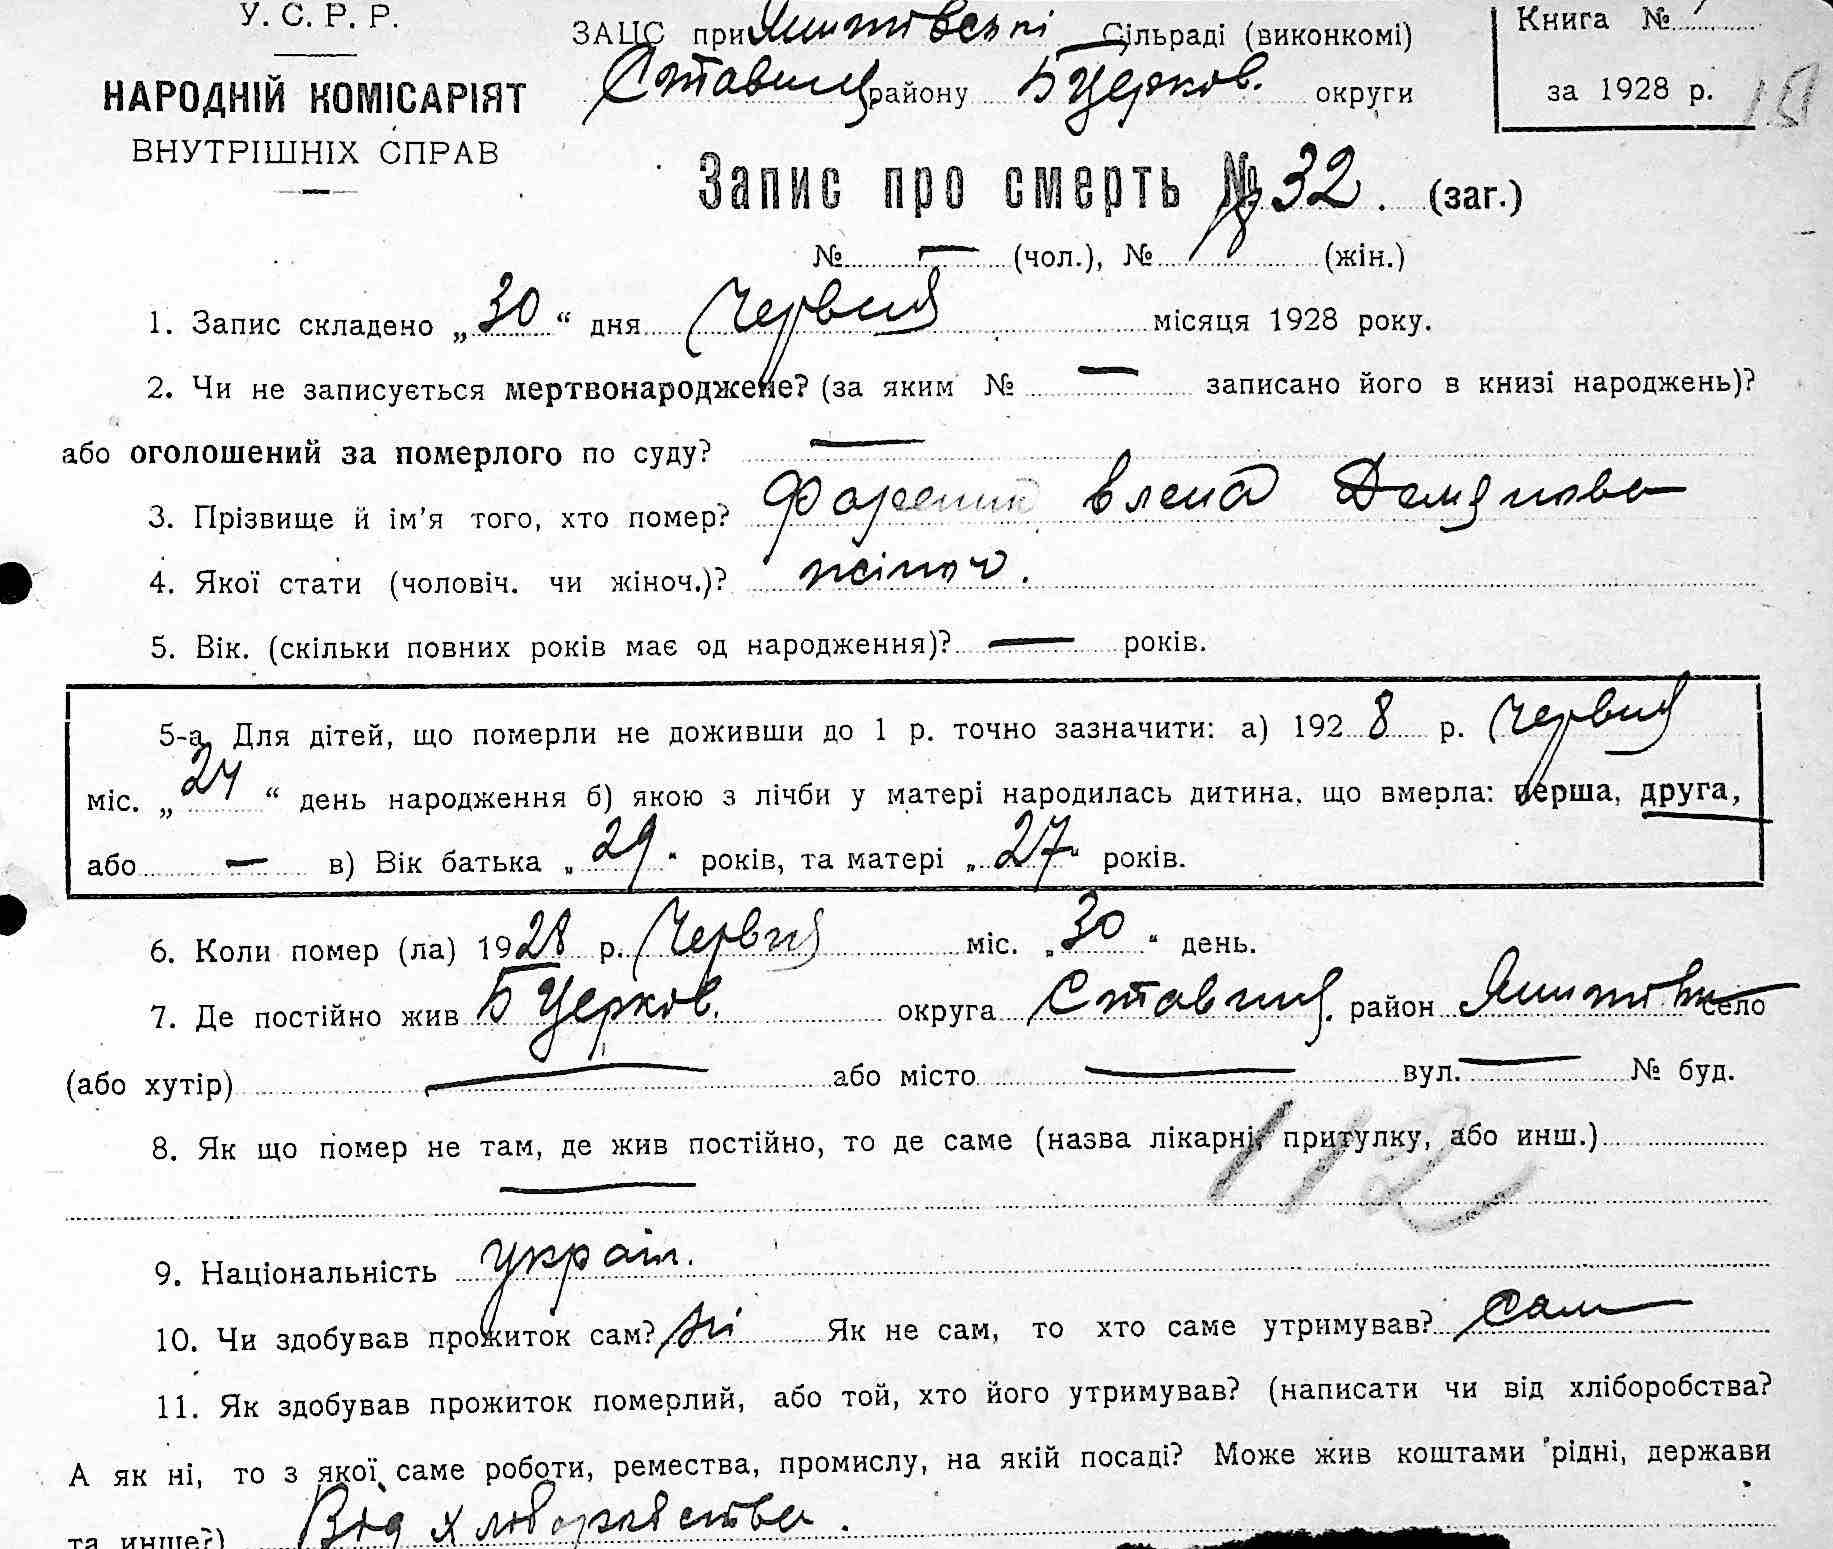 У. С. Р. Р.
НАРОДНІЙ КОМІСАРІЯТ
ВНУТРІШНІХ СПРАВ
ЗАЦС при Сільраді (виконкомі)
Ставищ району Б Церков. округи
Книга №
за 1928 р.
Запис про смерть № 32. (заг.)
№ — (чол.), № (жін.)
1. Запис складено „30“ дня Червня місяця 1928 року.
2. Чи не записується мертвонароджене? (за яким № — записано його в книзі народжень)?
або оголошений за померлого по суду? —
3. Прізвище й ім'я того, хто помер? Влена Демянова
4. Якої стати (чоловіч. чи жіноч.)? жіноч.
5. Вік. (скільки повних років має од народження)? — років.
5-а. Для дітей, що померли не доживши до 1 р. точно зазначити: а) 1928 р. Червня
міс. „24“ день народження б) якою з лічби у матері народилась дитина, що вмерла: перша, друга,
або — в) Вік батька „29“ років, та матері „27“ років.
6. Коли помер (ла) 1928 р. Червня міс. „30“ день.
7. Де постійно жив Б Церков. округа Ставищ. район село
(або хутір) — або місто — вул. — № буд.
8. Як що помер не там, де жив постійно, то де саме (назва лікарні, притулку, або инш.)
—
112
9. Національність україн.
10. Чи здобував прожиток сам? ні Як не сам, то хто саме утримував?
11. Як здобував прожиток померлий, або той, хто його утримував? (написати чи від хліборобства?
А як ні, то з якої саме роботи, ремества, промислу, на якій посаді? Може жив коштами рідні, держави
та инше?) Від хліборобства.